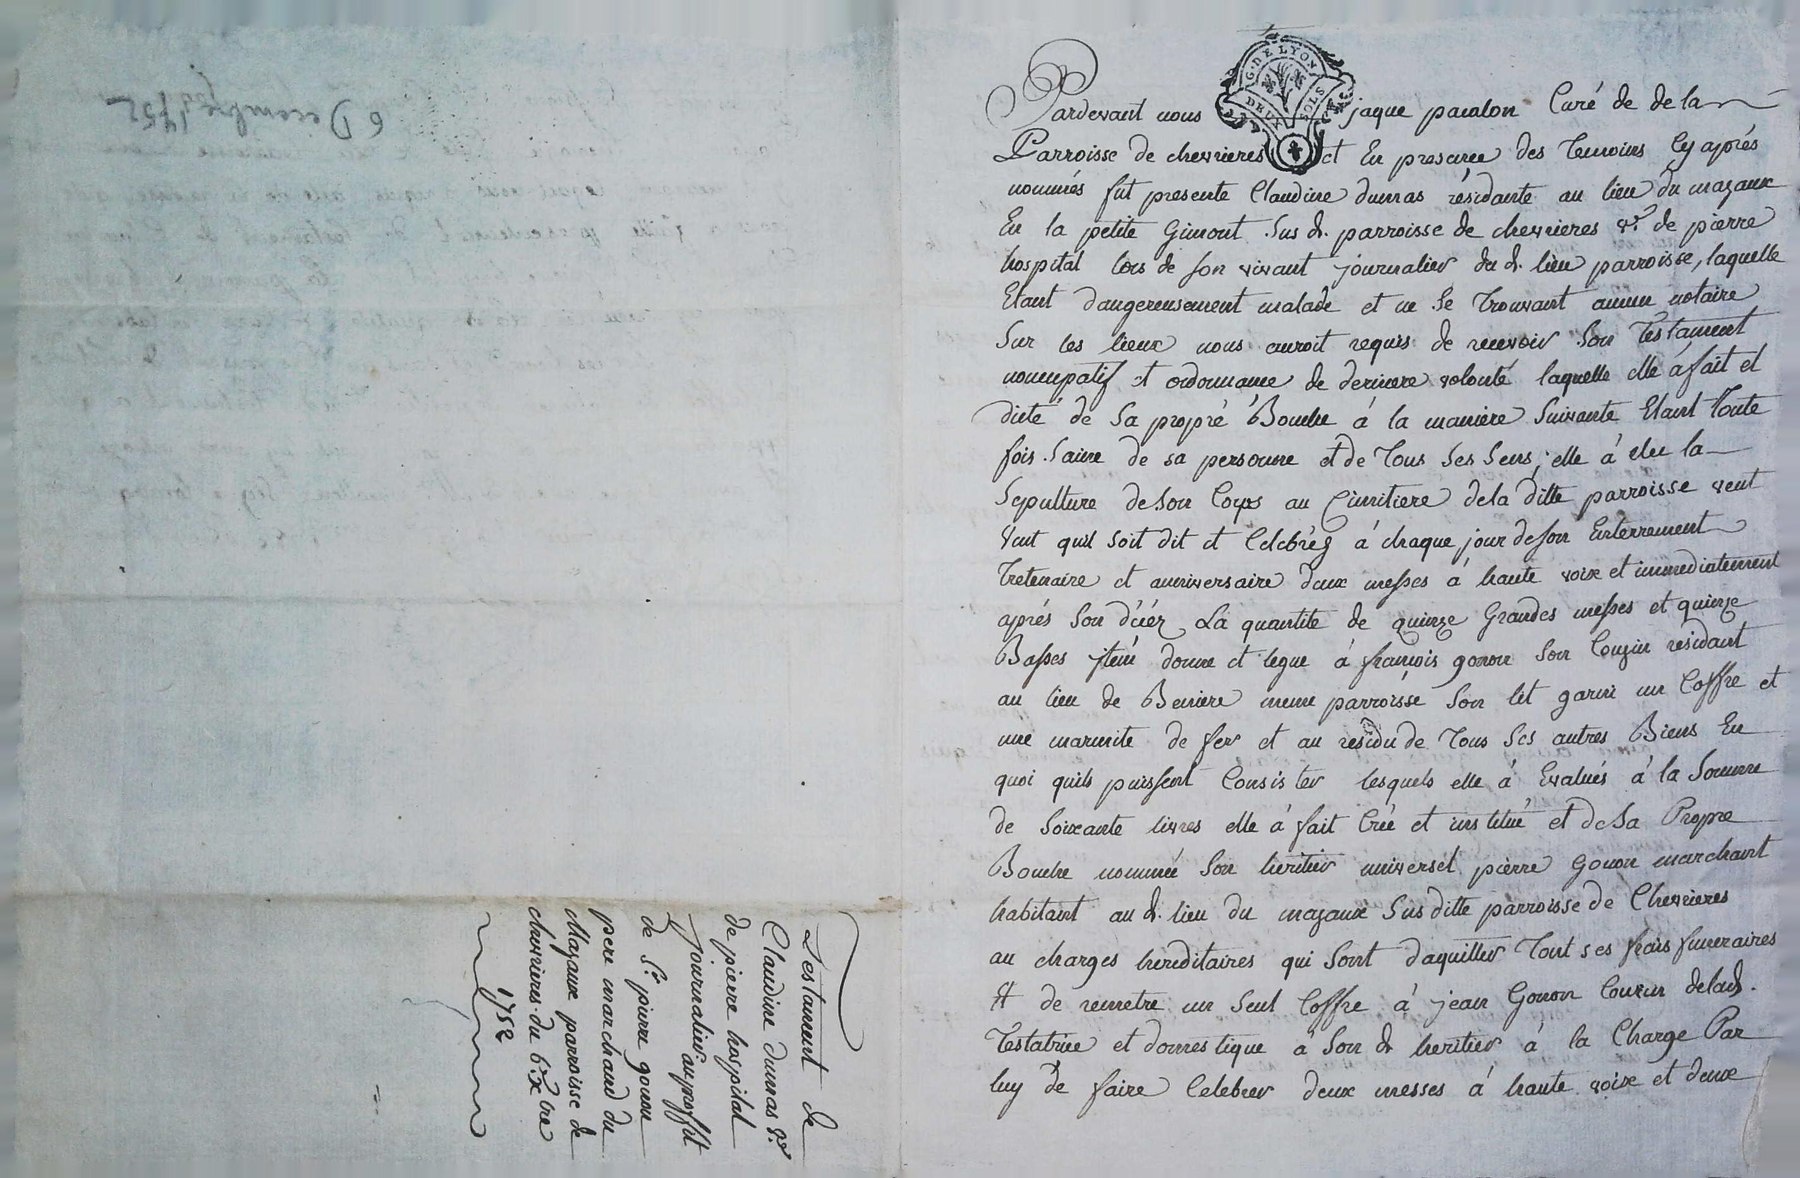 6 Decembre 1752
Testament de
Claudine dumas v.e
de pierre hospital
journalier au proffit
de S.r pierre gonon
pere marchand du
Mazaux parroisse de
chevrieres du 6.e Xbre
1752
G. DE LYON
DEUX SOLS
Pardevant nous jaque paulon Curé de de la
Parroisse de chevrieres et En presance des Temoins Cy aprés
nommés fut presente Claudine dumas résidante au lieu du mazaux
En la petite Gimont Sus d. parroisse de chevrieres v.e de pierre
hospital lors de son vivant journalier du d. lieu parroisse, laquelle
Etant dangereusement malade et ne Se Trouvant aucun notaire
Sur les lieux nous auroit requis de recevoir Son Testament
noncupatif et ordonnance de derniere volonté laquelle elle á fait et
dicté de Sa propre Bouche á la maniere Suivante Etant Toute
fois Saine de sa personne et de Tous Ses Sens; elle á elu la
Sepulture de Son Corps au Cimitiere de la ditte parroisse veut
veut quil soit dit et Celebréz á chaque jour de son Enterrement
Tretenaire et anniversaire deux messes á haute voixe et immediatement
aprés Son décéz La quantité de quinze Grandes messes et quinze
Basses jtem donne et legue á françois gonon Son Couzin résidant
au lieu de Beniere meme parroisse Son lit garni un Coffre et
une marmite de fer et au residu de Tous Ses autres Biens En
quoi quils puissent Consister lesquels elle á Evalués á la Somme
de Soixante livres elle á fait Créé et institué et de Sa Propre
Bouche nommée Son heritier universel pierre Gonon marchant
habitant au d. lieu du mazaux Sus ditte parroisse de Chevrieres
au charges héréditaires qui Sont daquitter Tout ses frais funeraires
Et de remetre un Seul Coffre á jean Gonon Couzin de lad.
Testatrice et domestique á Son d. heritier á la Charge Par
luy de faire Celebrer deux messes á haute voixe et deux